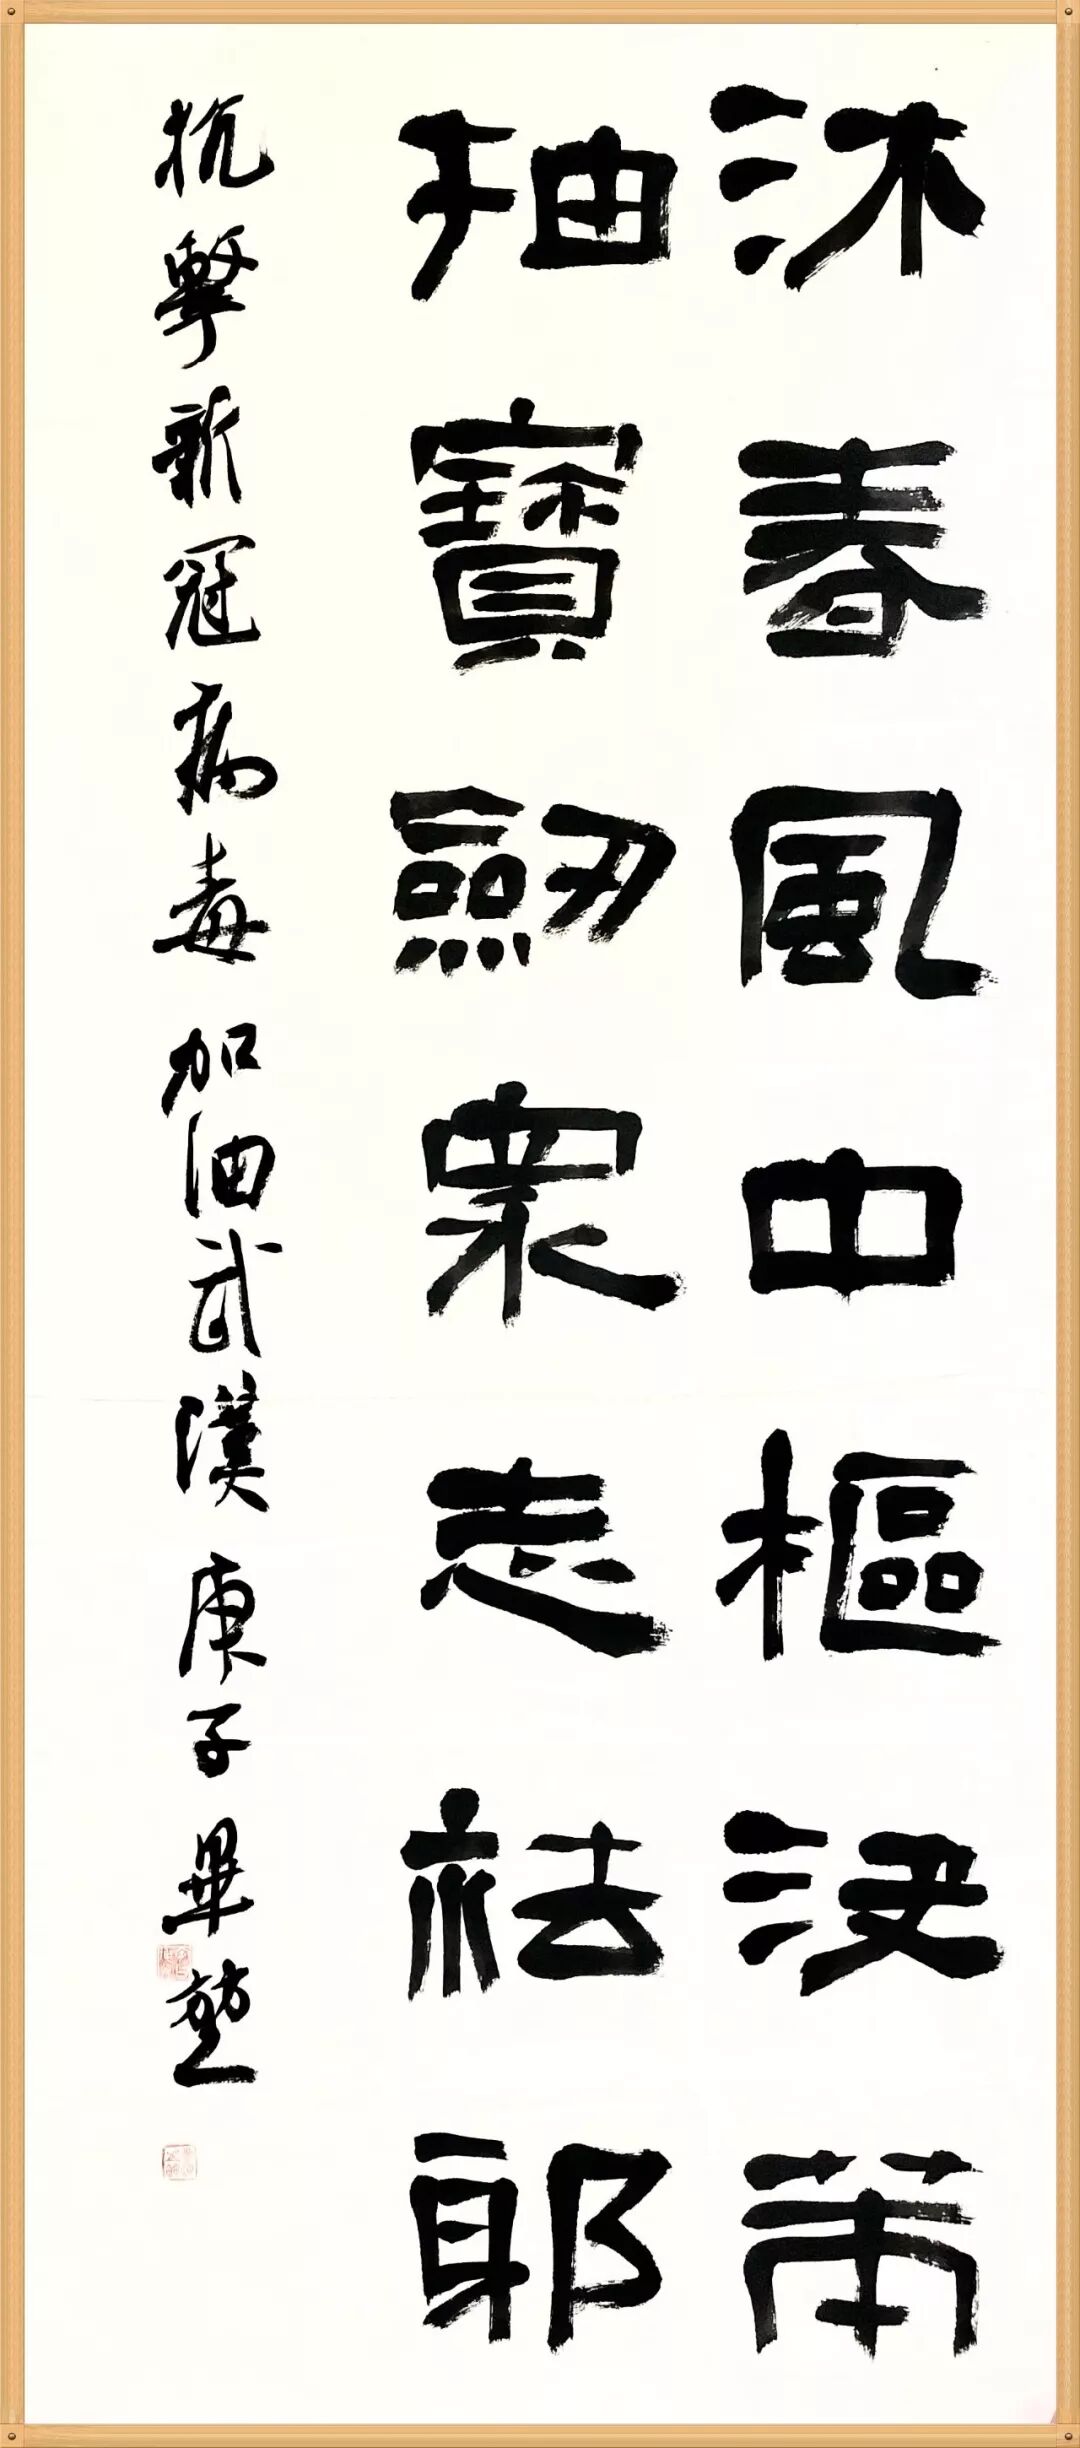 沐春風中樞決策
抽寶劒眾志祛耶
抗擊新冠病毒 加油武漢 庚子 畢